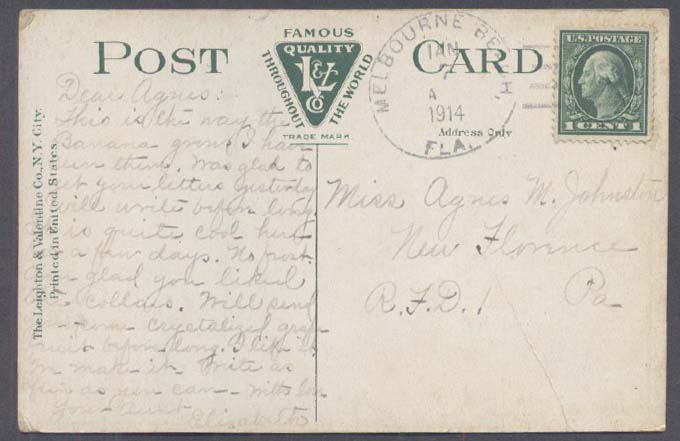 POST CARD
FAMOUS
QUALITY
THROUGHOUT THE WORLD
L & V
CO
TRADE MARK
Address Only
MELBOURNE BEACH
JAN
A
1914
FLA.
U.S. POSTAGE
1 CENT 1
The Leighton & Valentine Co., N.Y. City.
Printed in United States.
Dear Agnes:-
This is the way the
Banana grows I have
seen them. Was glad to
get your letter yesterday
will write before long.
is quite cool here
a few days. No frost.
glad you liked
collars. Will send
some crystalized grape
fruit before long. I
make it. Write as
as you can - With love
Your Aunt
Elizabeth
Miss Agnes M. Johnston
New Florence
R.F.D. 1 Pa